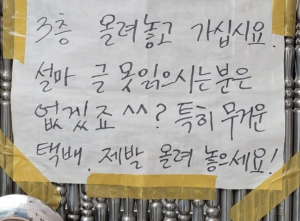 3층 올려놓고 가십시요.
설마 글 못읽으시는분은
없겠죠 ^^? 특히 무거운
택배. 제발 올려 놓으세요!